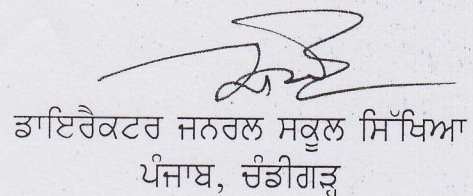 ਡਾਇਰੈਕਟਰ ਜਨਰਲ ਸਕੂਲ ਸਿੱਖਿਆ
ਪੰਜਾਬ, ਚੰਡੀਗੜ੍ਹ